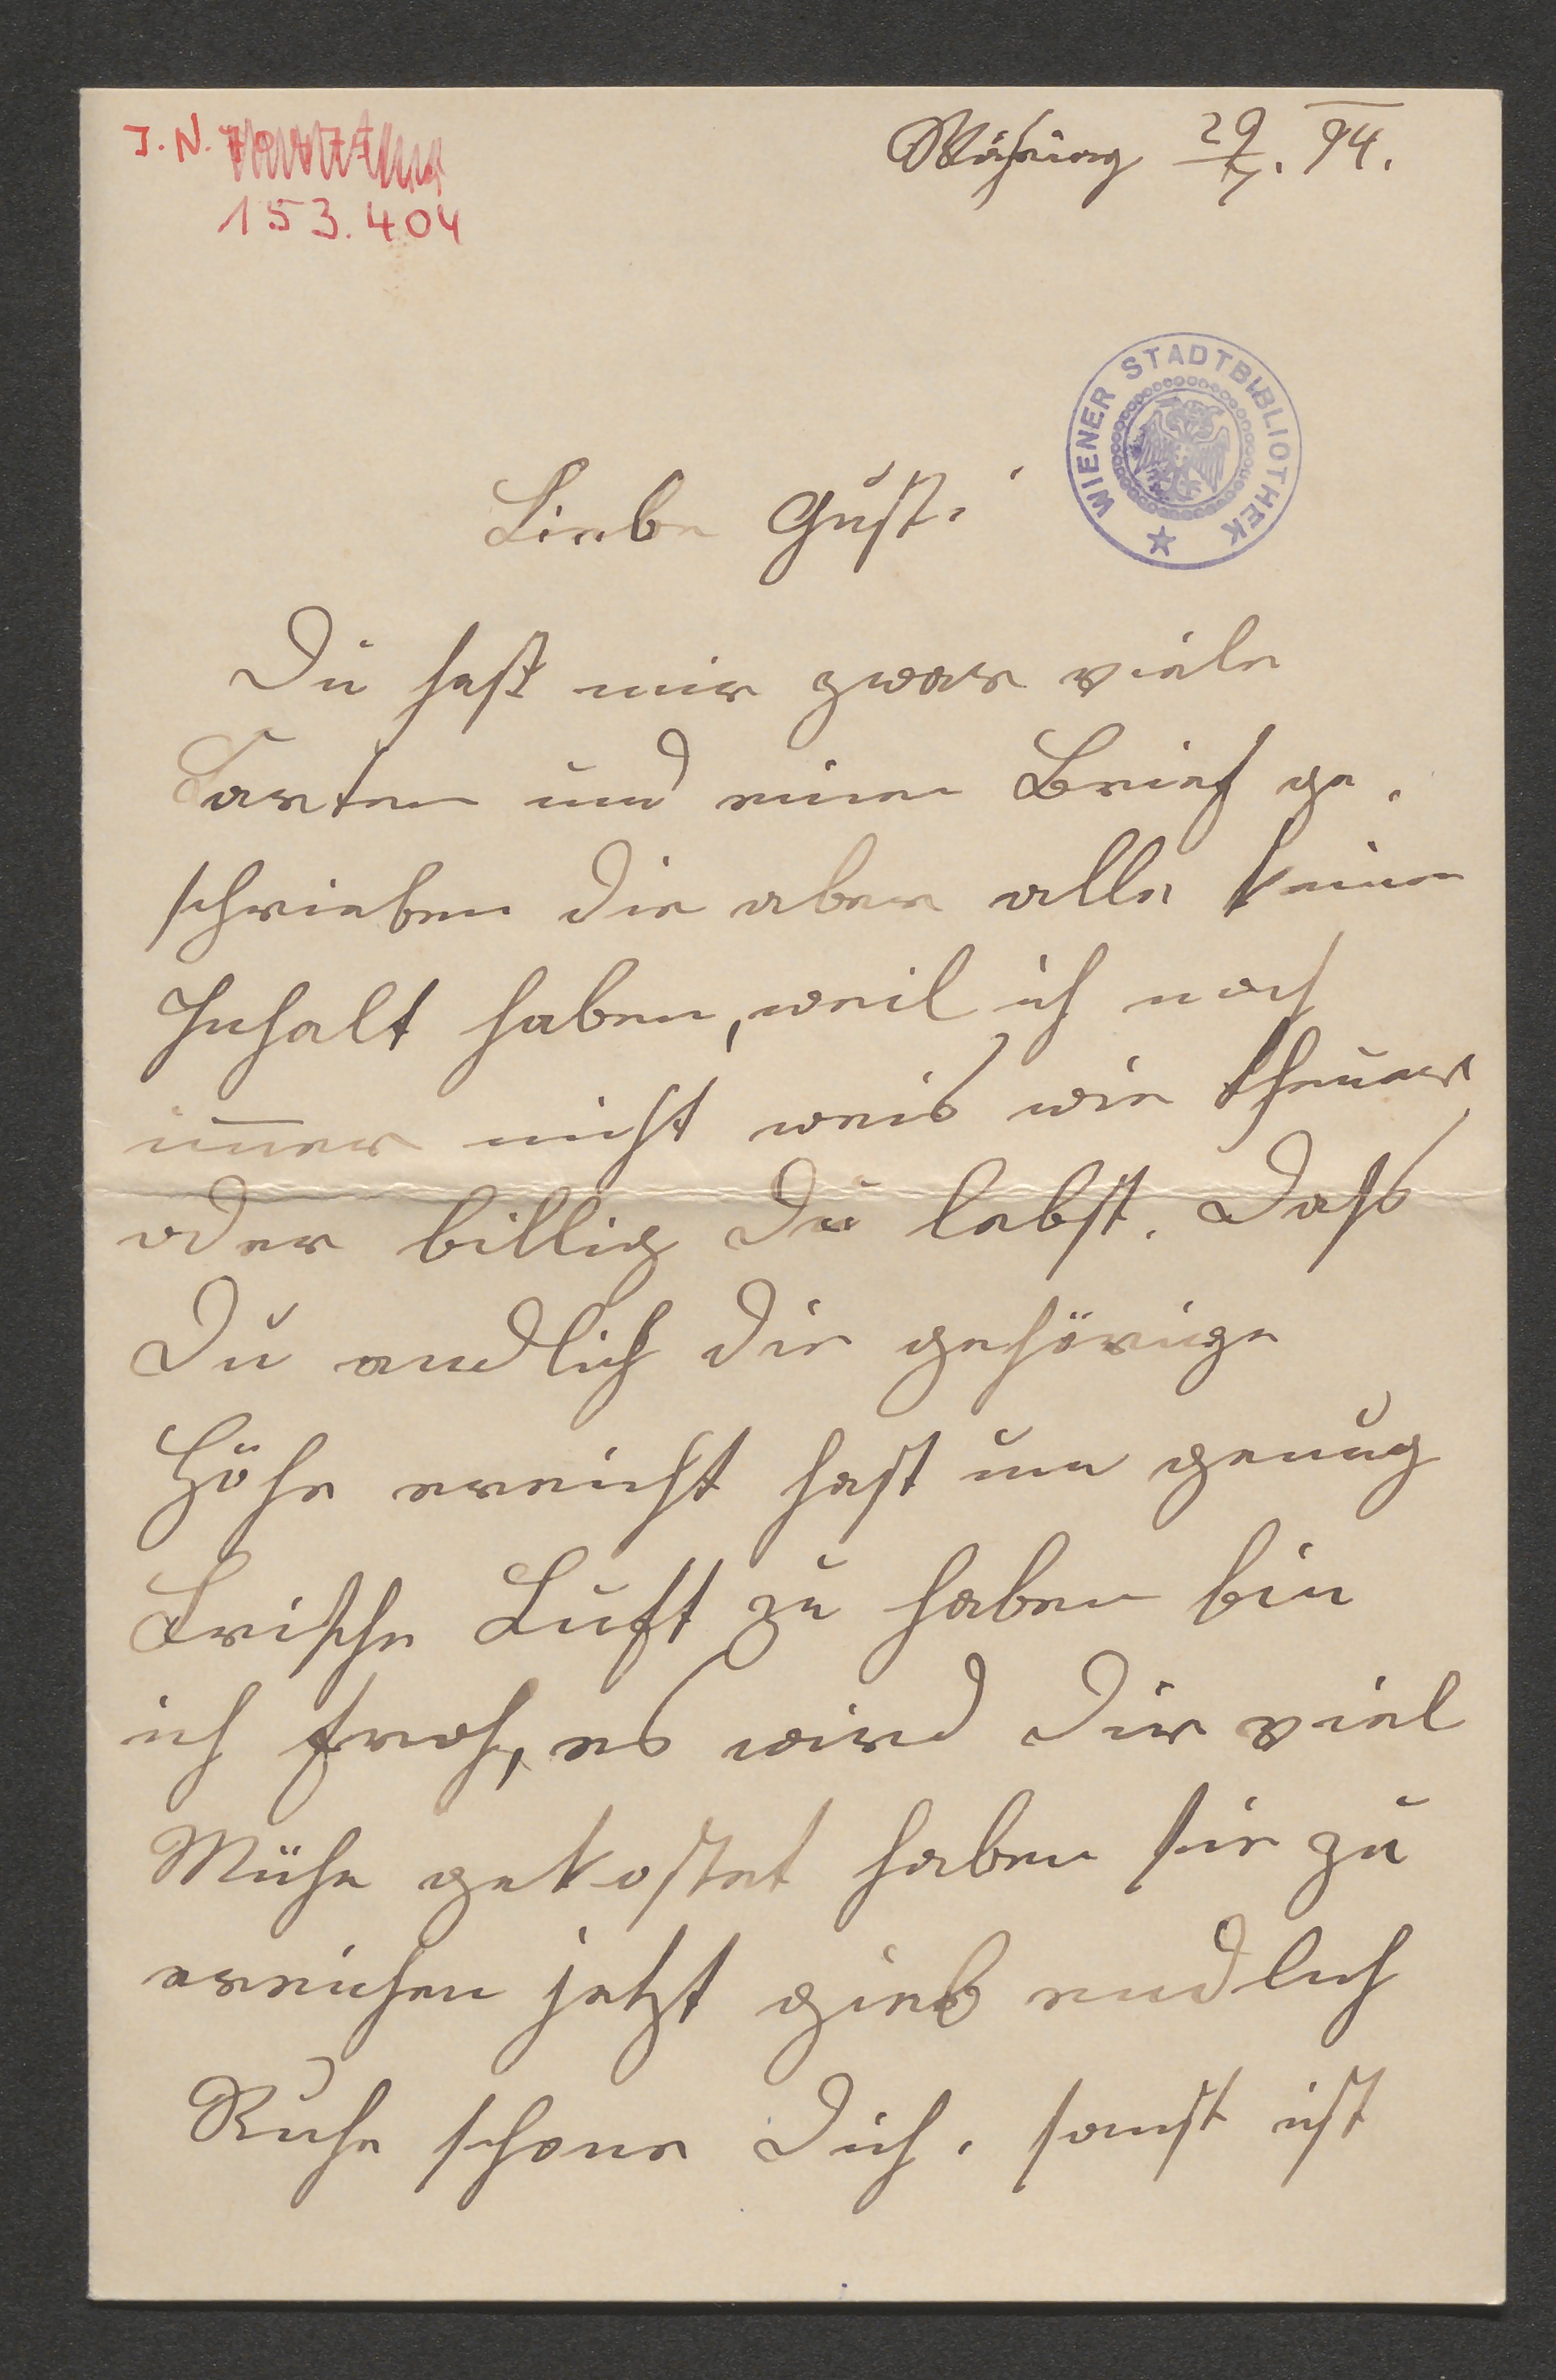 J. N.
153.404
Währing 29/7. 94.
WIENER STADTBIBLIOTHEK
Liebe Gusti
Du hast mir zwar viele
Karten und einen Brief ge-
schrieben die aber alle keinen
Inhalt haben, weil ich noch
im̅er nicht weis wie theuer
oder billig Du lebst. Dass
Du endlich die gehörige
Höhe erreicht hast um genug
Frische Luft zu haben bin
ich froh, es wird Dir viel
Mühe gekostet haben sie zu
erreichen jetzt gieb endlich
Ruhe schone Dich. sonst ist